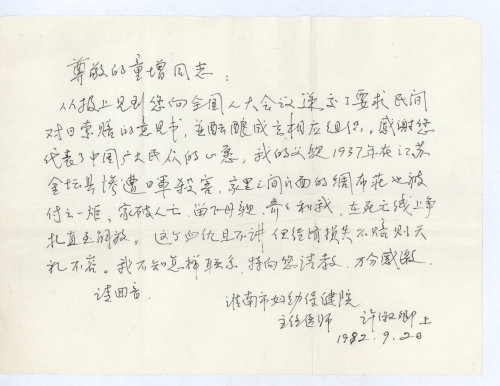 尊敬的童增同志：
从报上见到您向全国人大会议递交了要求民间
对日索赔的意见书，並酝酿成立相应组织。感谢您
代表了中国广大民众的心愿。我的父親1937年在江苏
金坛县惨遭日軍殺害，家里三间门面的绸布莊也被
付之一炬，家破人亡，留下母親、和我，在死亡线上争
扎直至解放。这个血仇且不讲但经济损失不赔则天
礼不容。我不知怎样联系，特向您请教，万分感激。
请回音。
淮南市妇幼保健院
主任医师 许淑卿上
1992.9.20